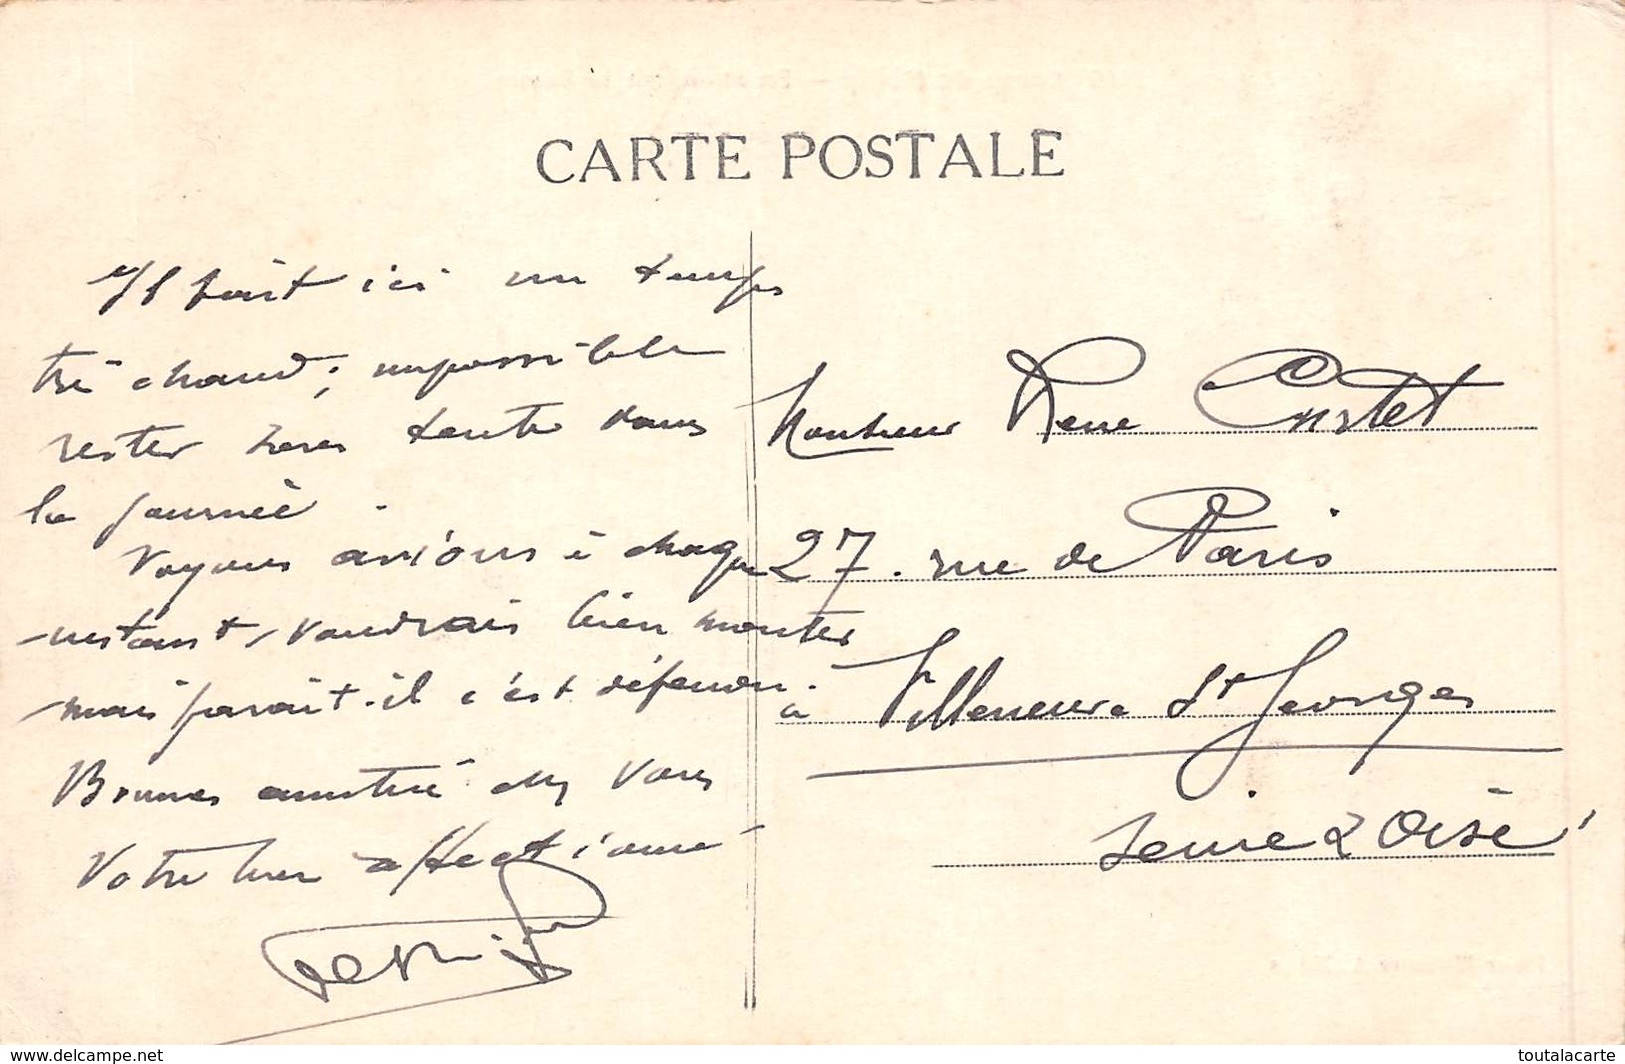 CARTE POSTALE
Il fait ici un temps
très chaud; impossible
rester sous tente dans
la journée.
Voyons avions à chaque
instant, voudrais bien monter
mais parait-il c'est défendu.
Bonnes amitiés chez vous
Votre bien affectionné
Monsieur René
27. rue de Paris
à Villeneuve St Georges
Seine & Oise
www.delcampe.net
toutalacarte